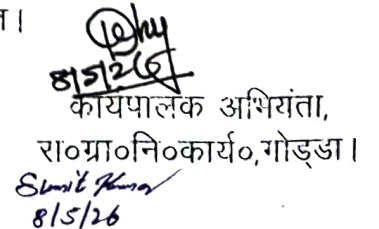 त।
8/5/26
कार्यपालक अभियंता,
रा०ग्रा०नि०कार्य०,गोड्डा।
Sumit Kumar
8/5/26